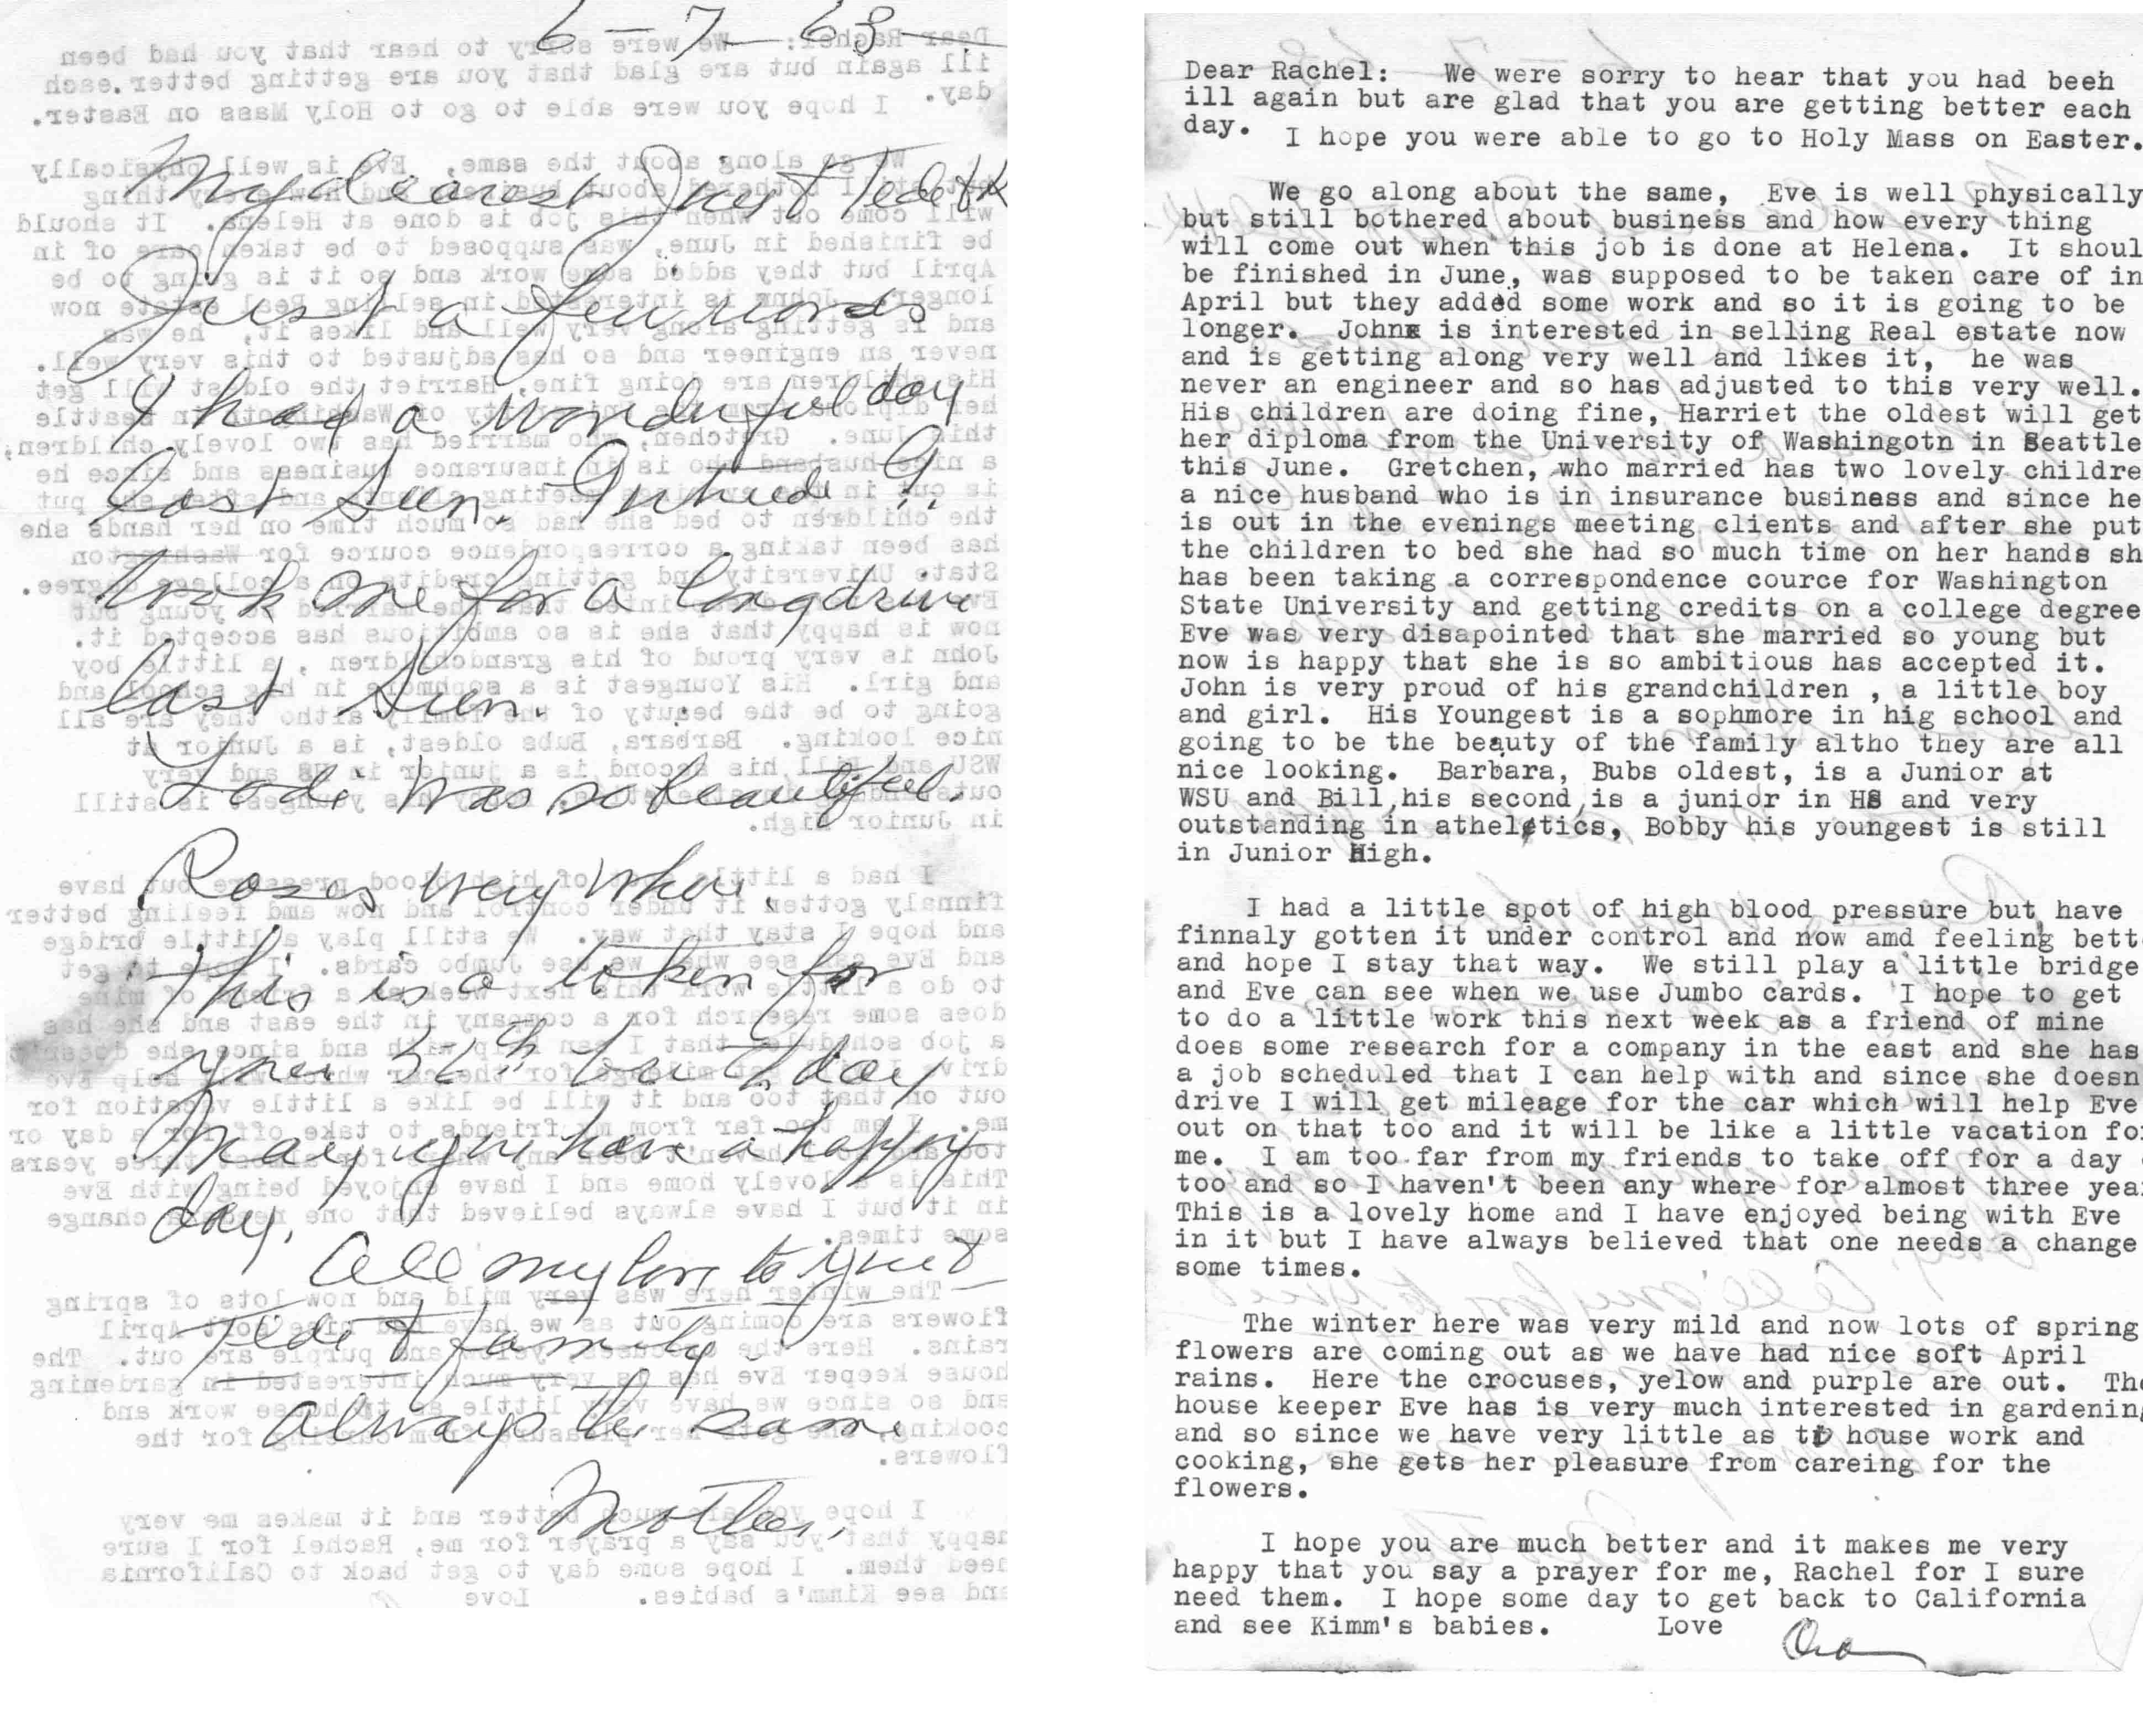 6-7-63
My dearest Just Tede & K
Just a few words
I had a wonderful day
last Sun.
took me for a long drive
last Sun.
Lodi was so beautiful.
Roses very wher.
This is a token for
your birthday
May you have a happy
day.
All my love to you &
Tede & family.
always the same
Mother,
Dear Rachel: We were sorry to hear that you had beeh
ill again but are glad that you are getting better each
day. I hope you were able to go to Holy Mass on Easter.
We go along about the same, Eve is well physically
but still bothered about business and how every thing
will come out when this job is done at Helena. It shoul
be finished in June, was supposed to be taken care of in
April but they added some work and so it is going to be
longer. John is interested in selling Real estate now
and is getting along very well and likes it, he was
never an engineer and so has adjusted to this very well.
His children are doing fine, Harriet the oldest will get
her diploma from the University of Washingotn in Seattle
this June. Gretchen, who married has two lovely childre
a nice husband who is in insurance business and since he
is out in the evenings meeting clients and after she put
the children to bed she had so much time on her hands sh
has been taking a correspondence cource for Washington
State University and getting credits on a college degree
Eve was very disapointed that she married so young but
now is happy that she is so ambitious has accepted it.
John is very proud of his grandchildren , a little boy
and girl. His Youngest is a sophmore in hig school and
going to be the beauty of the family altho they are all
nice looking. Barbara, Bubs oldest, is a Junior at
WSU and Bill,his second,is a junior in HS and very
outstanding in atheletics, Bobby his youngest is still
in Junior High.
I had a little spot of high blood pressure but have
finnaly gotten it under control and now amd feeling bett
and hope I stay that way. We still play a little bridge
and Eve can see when we use Jumbo cards. I hope to get
to do a little work this next week as a friend of mine
does some research for a company in the east and she has
a job scheduled that I can help with and since she doesn
drive I will get mileage for the car which will help Eve
out on that too and it will be like a little vacation fo
me. I am too far from my friends to take off for a day
too and so I haven't been any where for almost three yea
This is a lovely home and I have enjoyed being with Eve
in it but I have always believed that one needs a change
some times.
The winter here was very mild and now lots of spring
flowers are coming out as we have had nice soft April
rains. Here the crocuses, yelow and purple are out. The
house keeper Eve has is very much interested in gardening
and so since we have very little as to house work and
cooking, she gets her pleasure from careing for the
flowers.
I hope you are much better and it makes me very
happy that you say a prayer for me, Rachel for I sure
need them. I hope some day to get back to California
and see Kimm's babies. Love Ora